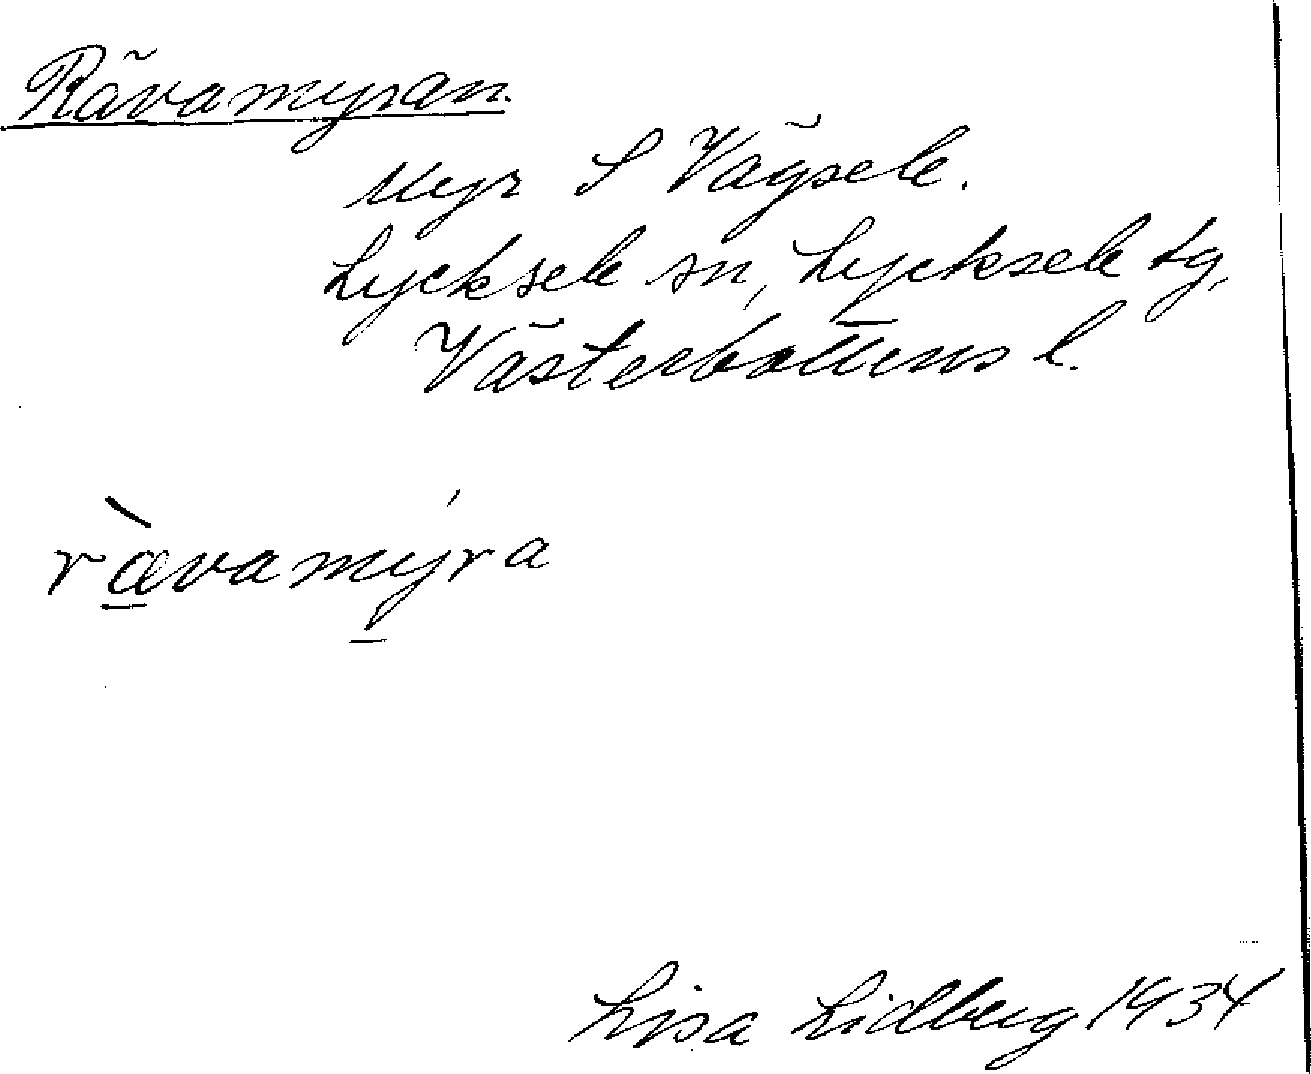 Rävamyran.
Myr S Vägsele.
Lycksele sn, Lycksele tg,
Västerbottens l.
r̀ævamýra
Lisa Lidberg 1934